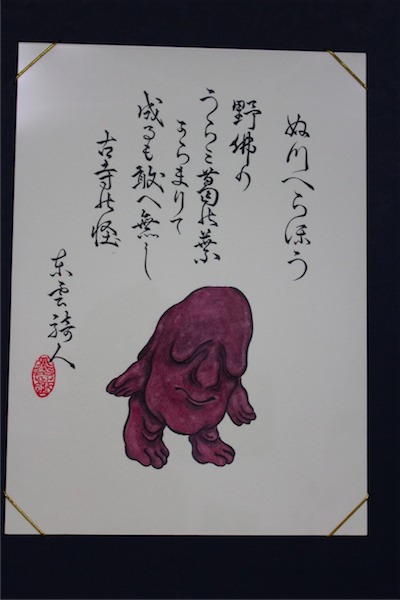 ぬつへらほう
野佛の
うらミ葛の葉
からまりて
成るも敢へ無し
古寺の怪
東雲騎人